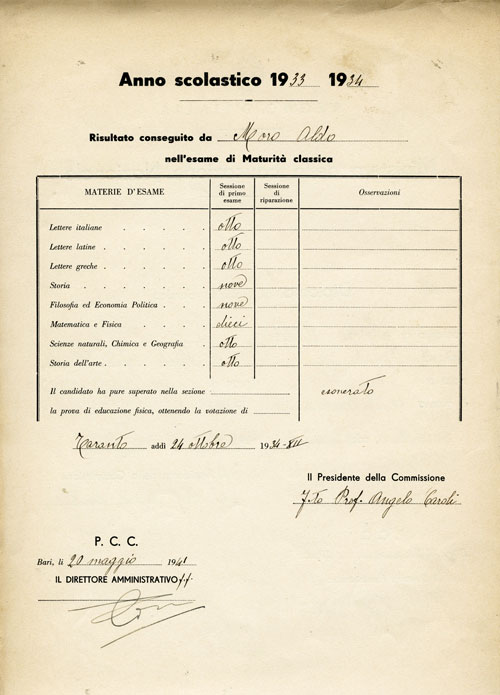 Anno scolastico 1933 1934
Risultato conseguito da Moro Aldo
nell'esame di Maturità classica
MATERIE D'ESAME Sessione di primo esame Sessione di riparazione Osservazioni
Lettere italiane . . . . . otto
Lettere latine . . . . . . otto
Lettere greche . . . . . . otto
Storia . . . . . . . nove
Filosofia ed Economia Politica . . . . nove
Matematica e Fisica . . . . dieci
Scienze naturali, Chimica e Geografia . otto
Storia dell'arte . . . . . . otto
Il candidato ha pure superato nella sezione esonerato
la prova di educazione fisica, ottenendo la votazione di
Taranto addì 24 ottobre 1934-XII
Il Presidente della Commissione
F.to Prof. Angelo Caroli
P. C. C.
Bari, li 20 maggio 1941
IL DIRETTORE AMMINISTRATIVO ff